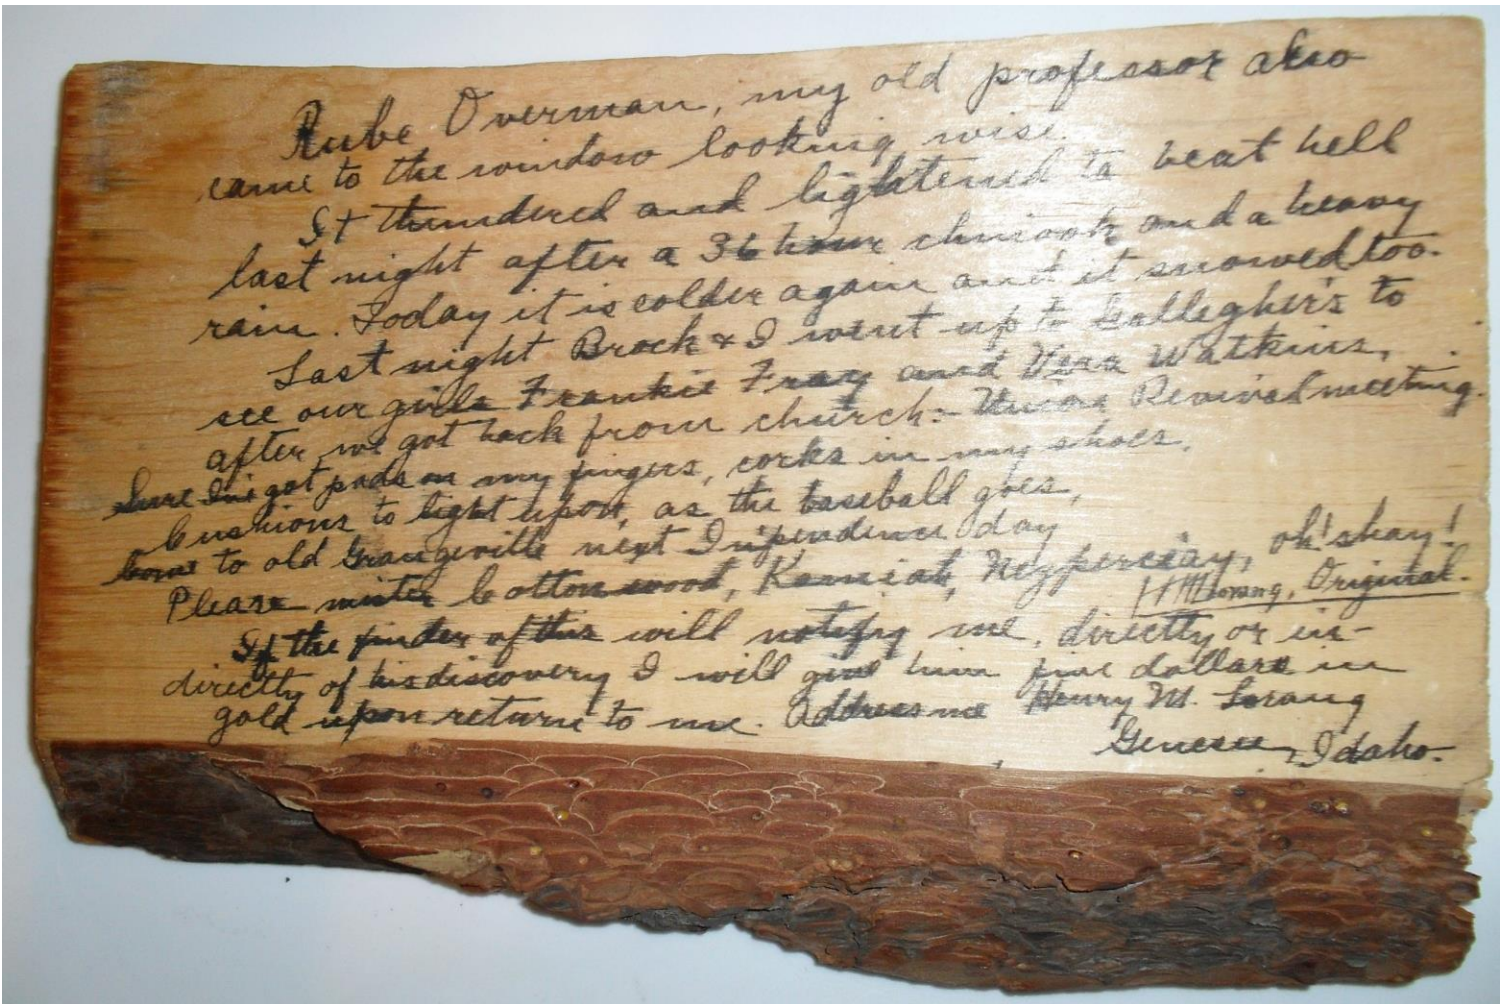 Rube Overman, my old professor also
came to the window looking wise.
It thundered and lightened to beat hell
last night after a 36 hour chinook and a heavy
rain. Today it is colder again and it snowed too.
Last night Brock & I went up to Gallegher's to
see our girls Frankie Fray and Vera Watkins,
after we got back from church:- Union Revival meeting.
Sure I've got pads on my fingers, corks in my shoes,
Cushions to light upon, as the baseball goes,
to old Grangeville next Independence day
Please mister Cottonwood, Kamiah, Nezperciay, oh! skay!
HMLorang, Original.
If the finder of this will notify me, directly or in-
directly of his discovery I will give him five dollars in
gold upon return to me. Address me Henry M. Lorang
Genesee, Idaho.